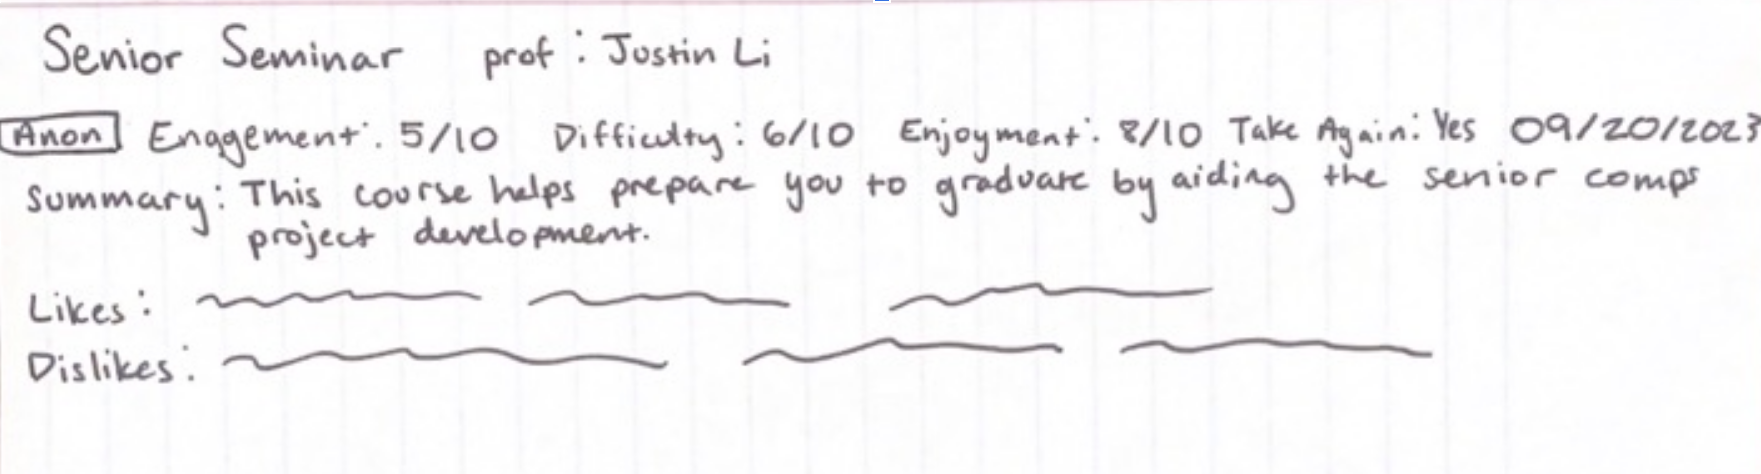 Senior Seminar prof: Justin Li
Anon Engagement: 5/10 Difficulty: 6/10 Enjoyment: 8/10 Take Again: Yes 09/20/2023
Summary: This course helps prepare you to graduate by aiding the senior comps
project development.
Likes:
Dislikes: